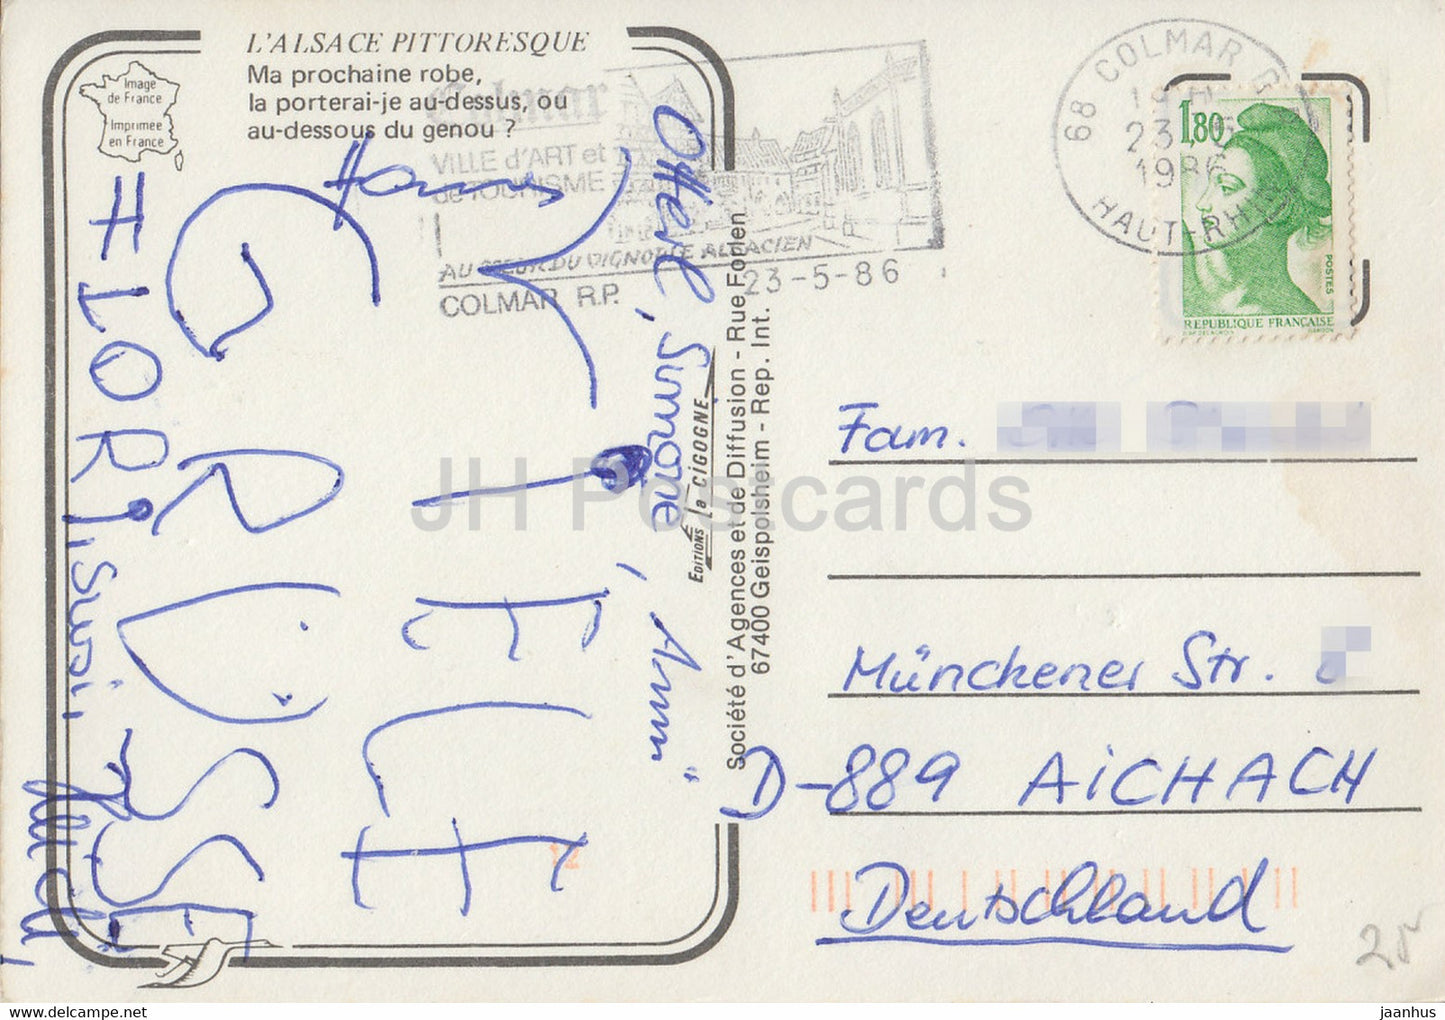 L'ALSACE PITTORESQUE
Ma prochaine robe,
la porterai-je au-dessus, ou
au-dessous du genou ?
Image
de France
Imprimée
en France
Colmar
VILLE d'ART et
de TOURISME
AU COEUR DU VIGNOBLE ALSACIEN
COLMAR R.P.
23-5-86
68 COLMAR
23
1986
HAUT-RHIN
1,80
POSTES
REPUBLIQUE FRANÇAISE
GRÜSSE
FLORI, SUSI,
Simone,
Société d'Agences et de Diffusion - Rue Forlen
67400 Geispolsheim - Rep. Int.
EDITIONS la CIGOGNE
Fam.
Münchener Str.
D-889 AiCHACH
Deutschland
12
25
JH Postcards
www.delcampe.net
jaanhus